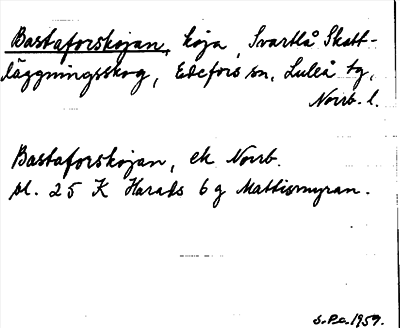 Bastaforskojan, koja, Svartlå Skatt-
läggningsskog, Edefors sn, Luleå tg,
Norrb. l.
Bastaforskojan, ek Norrb.
bl. 25 K Harads 6 g Mattismyran.
S.P.a. 1959.